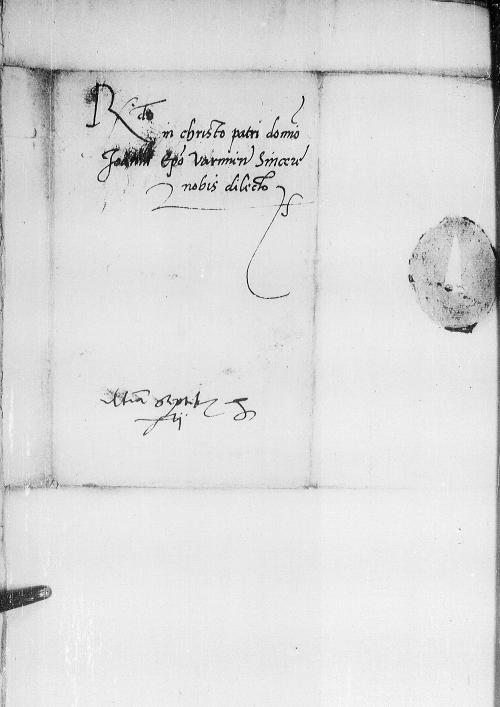 R do
in christo patri domio
Joanni Epo Varmien Sincere
nobis dilecto
ij